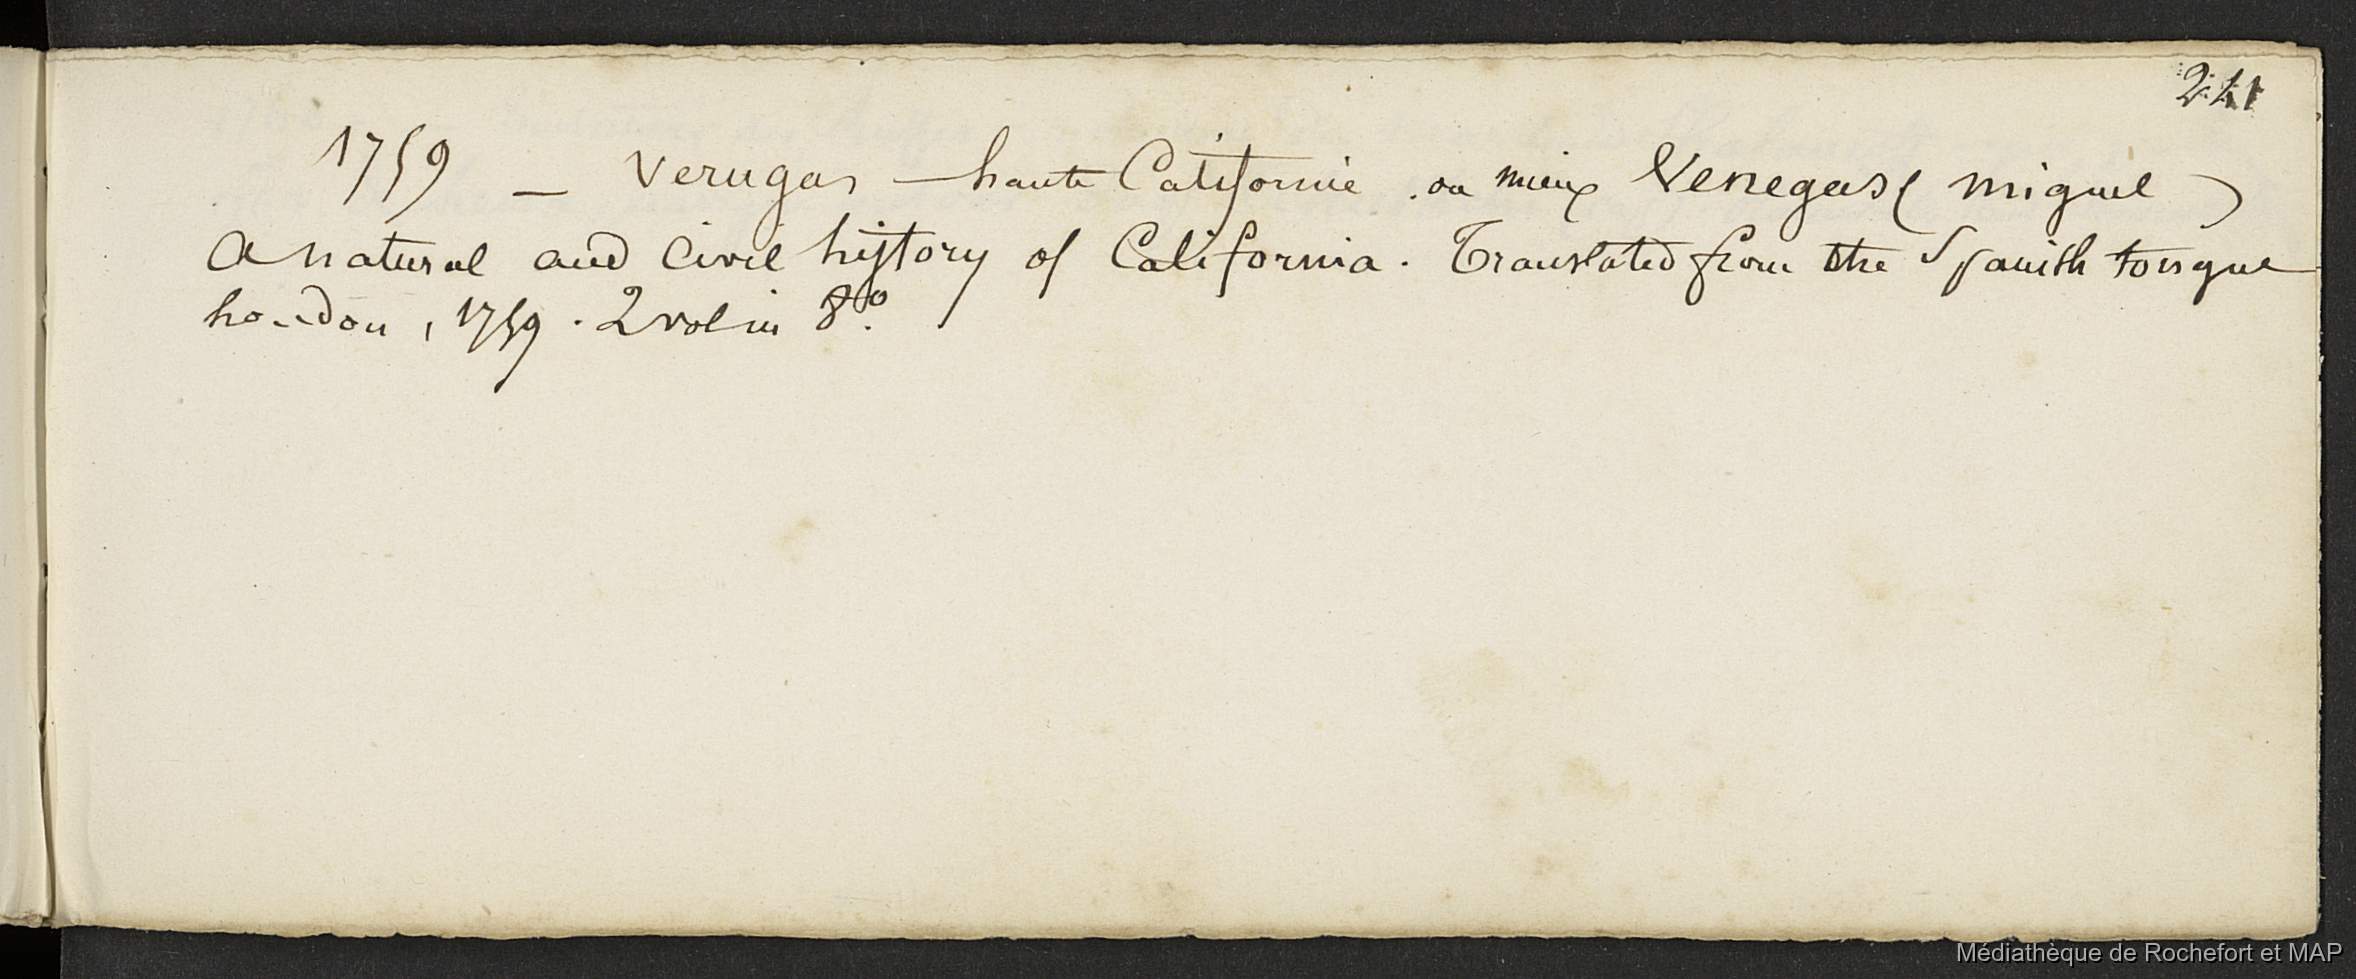 1759 – Verugas – haute Californie . ou mieux Venegas ( miguel )
A natural and Civil history of California . Translated from the Spanish tongue
London , 1759 . 2 vol in 8º.
Médiathèque de Rochefort et MAP